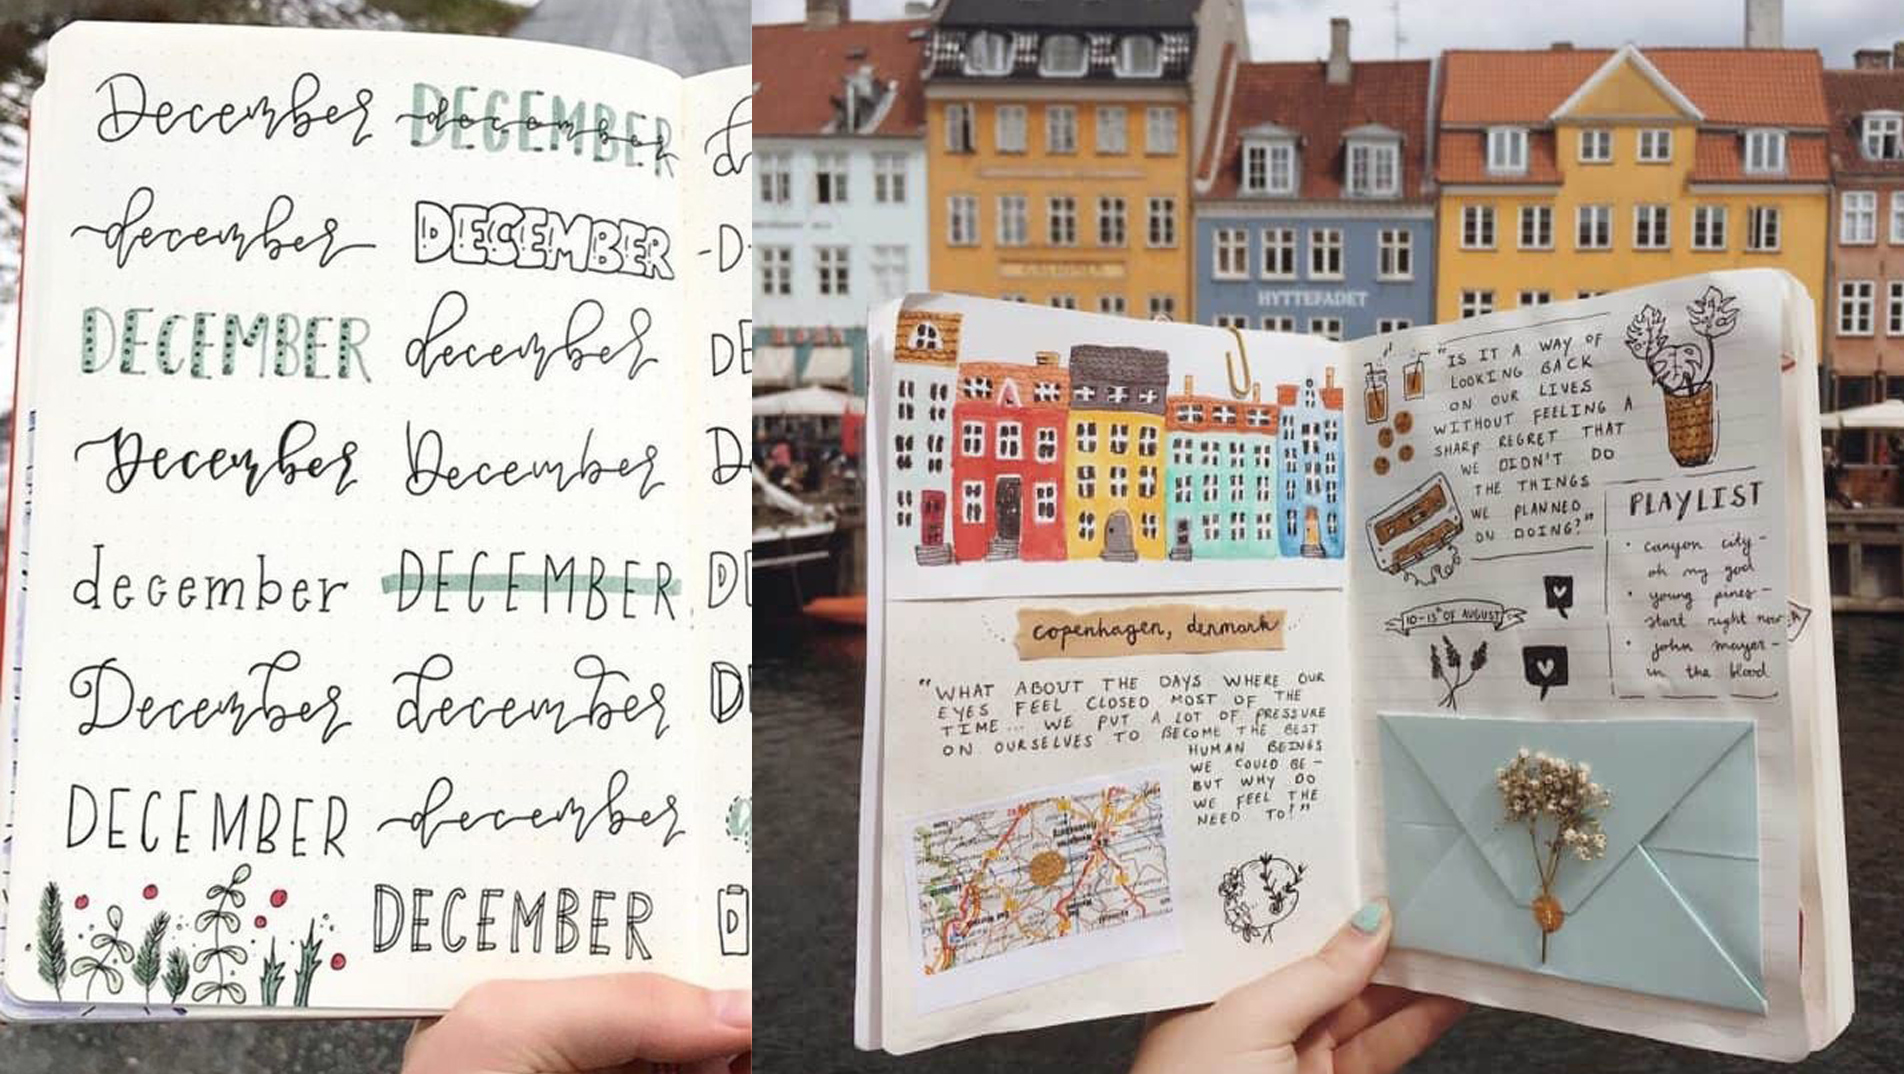 December
DECEMBER
december
december
DECEMBER
DECEMBER
december
December
December
december
DECEMBER
December
december
DECEMBER
december
DECEMBER
HYTTEFADET
copenhagen, denmark
"WHAT ABOUT THE DAYS WHERE OUR
EYES FEEL CLOSED MOST OF THE
TIME... WE PUT A LOT OF PRESSURE
ON OURSELVES TO BECOME THE BEST
HUMAN BEINGS
WE COULD BE –
BUT WHY DO
WE FEEL THE
NEED TO?"
"IS IT A WAY OF
LOOKING BACK
ON OUR LIVES
WITHOUT FEELING A
SHARP REGRET THAT
WE DIDN'T DO
THE THINGS
WE PLANNED
ON DOING?"
10-15th OF AUGUST
PLAYLIST
• canyon city –
oh my god
• young pines –
start right now
• john mayer –
in the blood